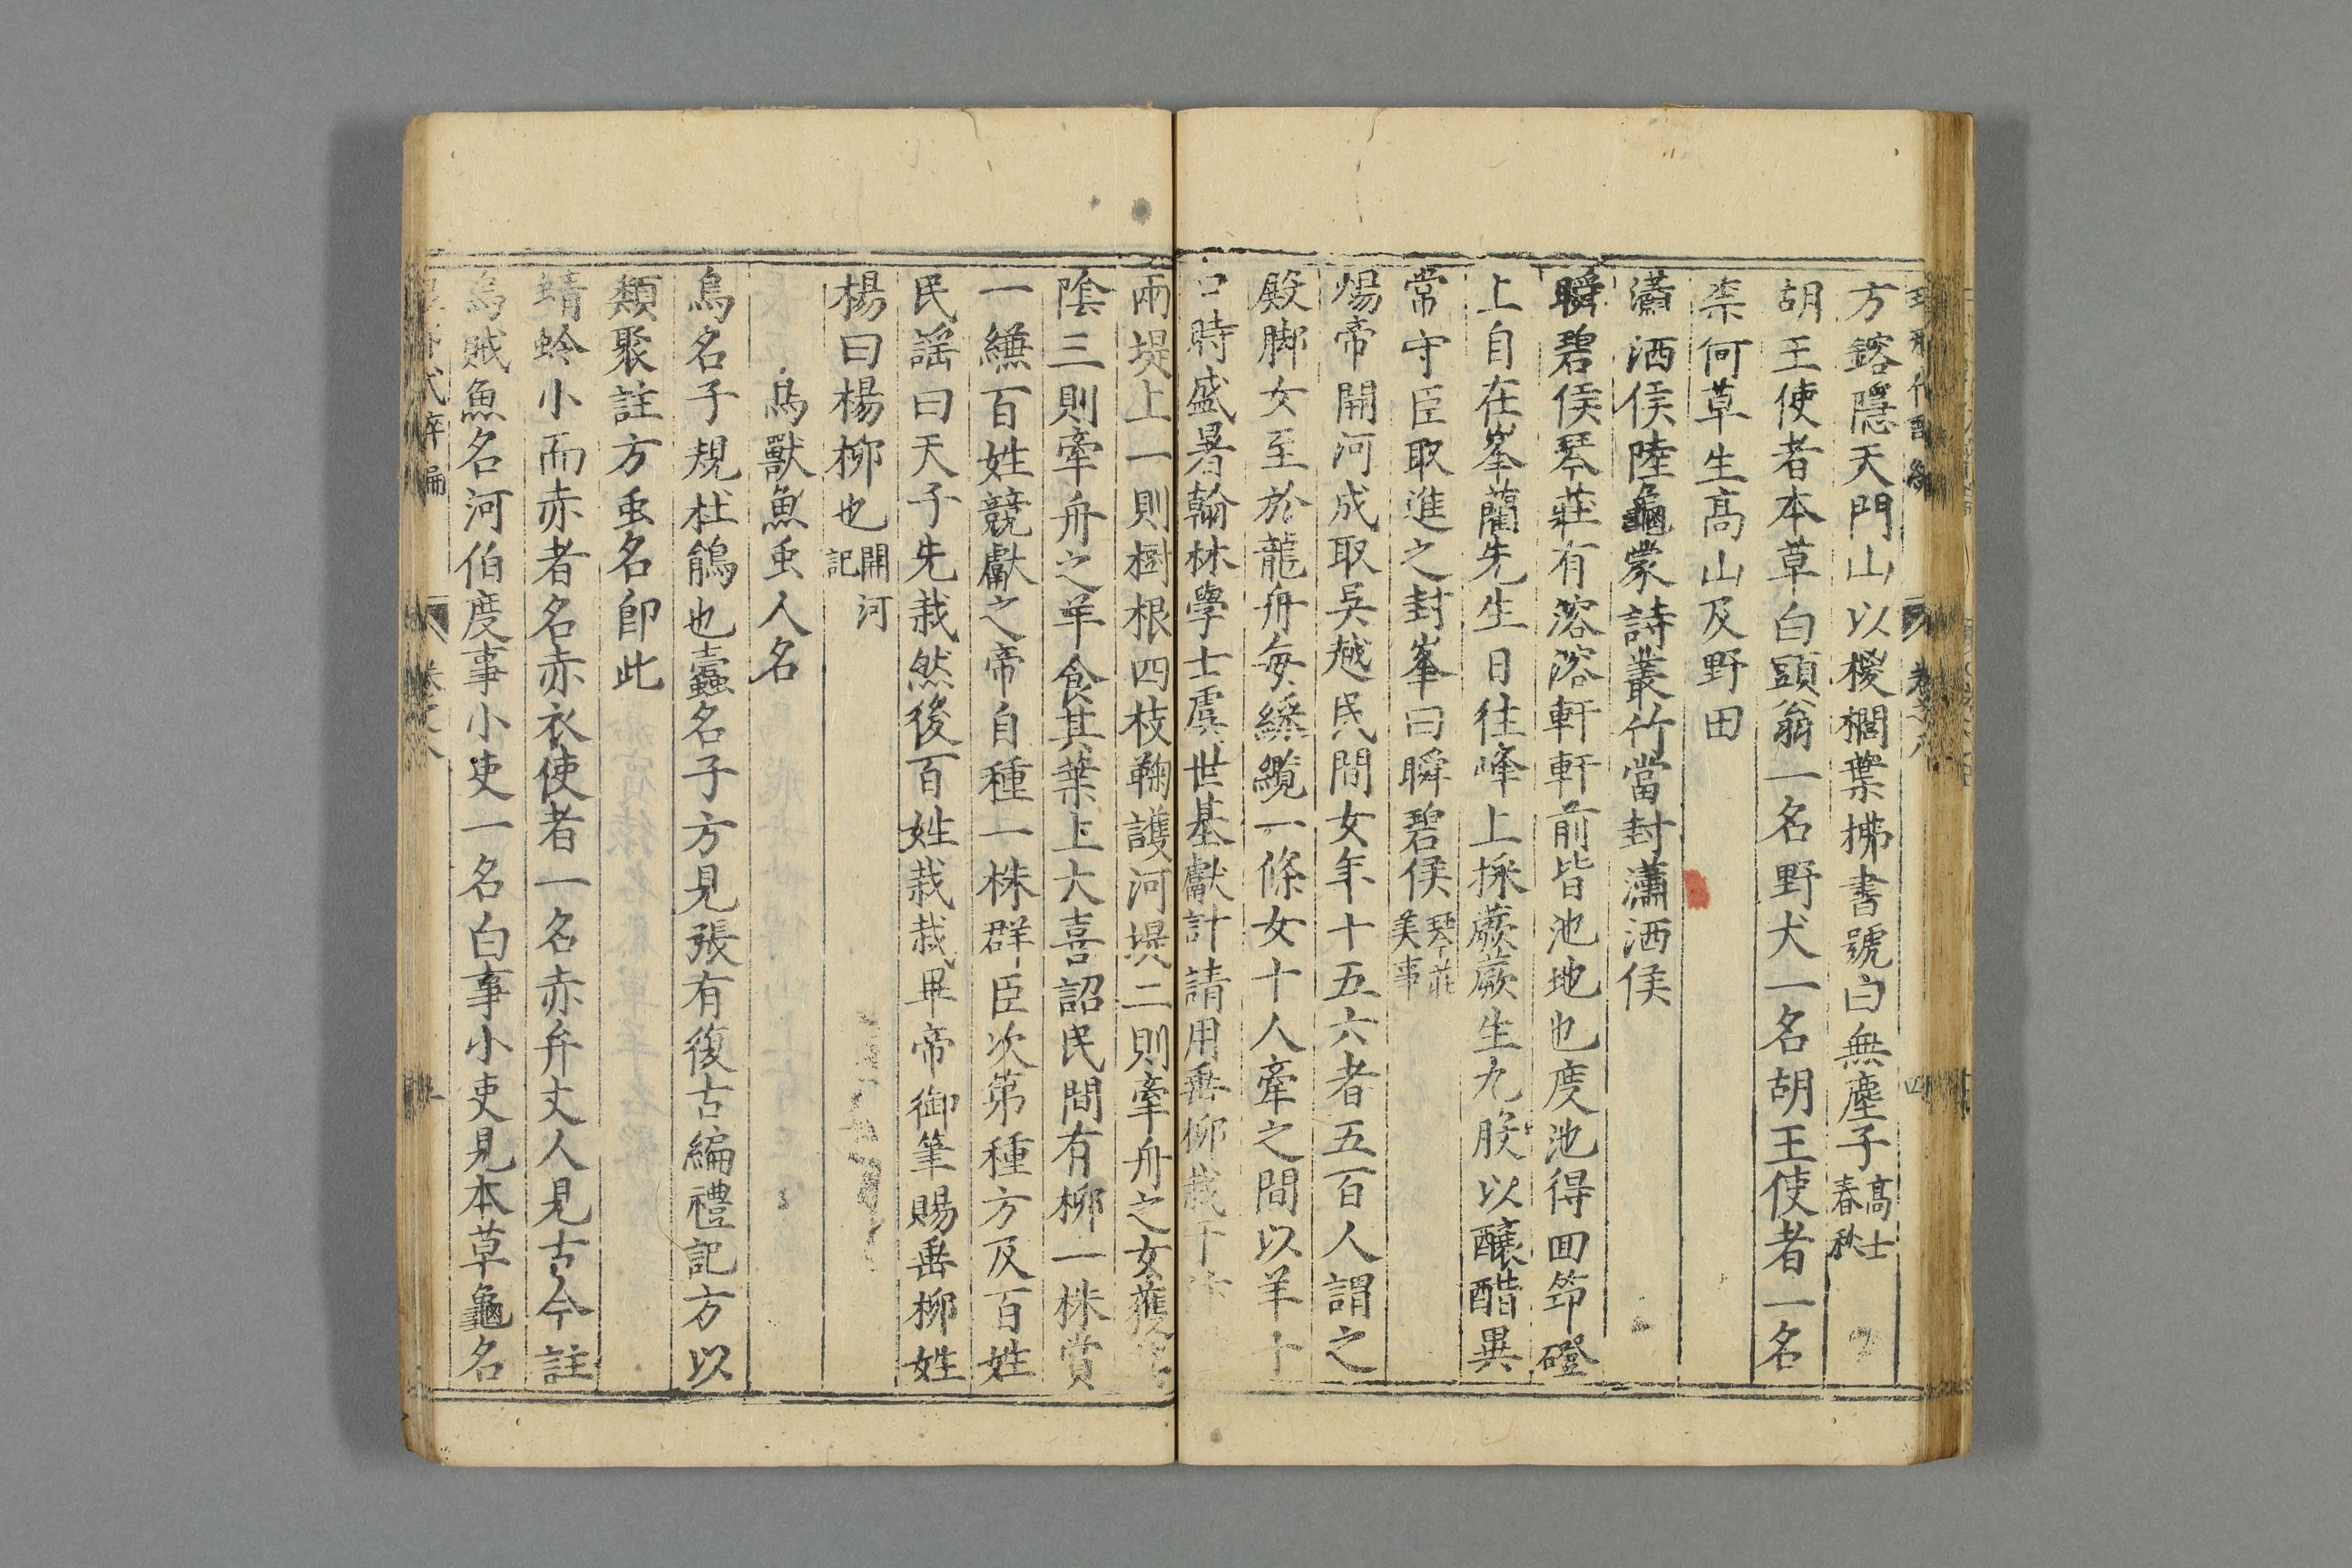 方鎔隱天門山以㯶櫚葉拂書號曰無塵子高士春秋
胡王使者本草白頭翁一名野犬一名胡王使者一名
柰何草生高山及野田
瀟洒侯陸龜蒙詩叢竹當封瀟洒侯
瞬碧侯琴莊有溶溶軒軒前皆池地也度池得回笻磴
上自在峯藺先生日往峰上採蕨蕨生九朘以釀醋異
常守臣取進之封峯曰瞬碧侯琴莊美事
煬帝開河成取吳越民間女年十五六者五百人謂之
殿脚女至於龍舟每綵纜一條女十人牽之間以羊十
口時盛暑翰林學士虞世基獻計請用垂柳栽于汴
兩堤上一則樹根四枝鞠護河堤二則牽舟之女獲
陰三則牽舟之羊食其葉上大喜詔民間有柳一株賞
一縑百姓競獻之帝自種一株群臣次第種方及百姓
民謠曰天子先栽然後百姓栽栽畢帝御筆賜垂柳姓
楊曰楊柳也開河記
鳥獸魚虫人名
鳥名子規杜鵑也蠹名子方見張有復古編禮記方以
類聚註方虫名卽此
蜻蛉小而赤者名赤衣使者一名赤弁丈人見古今註
烏賊魚名河伯度事小吏一名白事小吏見本草龜名